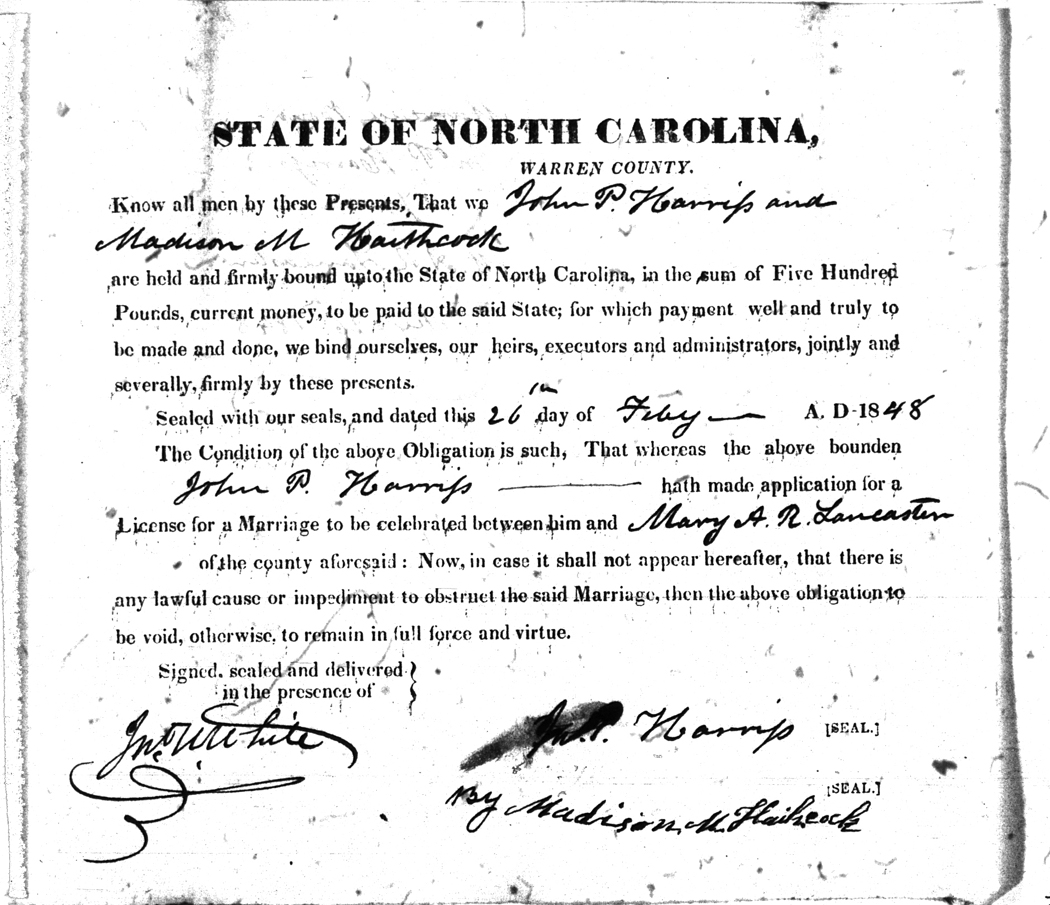 STATE OF NORTH CAROLINA,
WARREN COUNTY.
Know all men by these Presents, That we John P. Harriss and
Madison M Haithcock
are held and firmly bound unto the State of North Carolina, in the sum of Five Hundred
Pounds, current money, to be paid to the said State; for which payment well and truly to
be made and done, we bind ourselves, our heirs, executors and administrators, jointly and
severally, firmly by these presents.
Sealed with our seals, and dated this 26 day of Feby A. D. 1848
The Condition of the above Obligation is such, That whereas the above bounden
John P. Harriss hath made application for a
License for a Marriage to be celebrated between him and Mary A. R. Lancaster
of the county aforesaid: Now, in case it shall not appear hereafter, that there is
any lawful cause or impediment to obstruct the said Marriage, then the above obligation to
be void, otherwise, to remain in full force and virtue.
Signed, sealed and delivered
in the presence of
White
Jn. P. Harriss [SEAL.]
[SEAL.]
By Madison M. Haithcock